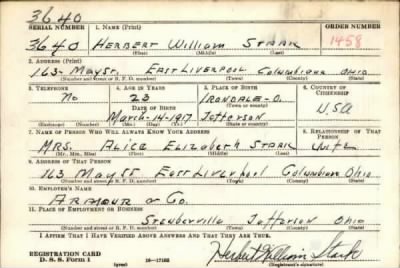 3640
SERIAL NUMBER 1. NAME (Print) ORDER NUMBER
3640 HERBERT William STARK 1458
(First) (Middle) (Last)
2. ADDRESS (Print)
163- May St. EAST LIVERPOOL Columbiana Ohio
(Number and street or R. F. D. number) (Town) (County) (State)
3. TELEPHONE 4. AGE IN YEARS 5. PLACE OF BIRTH 6. COUNTRY OF CITIZENSHIP
No 23 IRONDALE-O.
DATE OF BIRTH (Town or county)
March-14-1917 Jefferson USA
(Mo.) (Day) (Yr.) (State or country)
7. NAME OF PERSON WHO WILL ALWAYS KNOW YOUR ADDRESS 8. RELATIONSHIP OF THAT PERSON
MRS. Alice Elizabeth STARK Wife
(Mr., Mrs., Miss) (First) (Middle) (Last)
9. ADDRESS OF THAT PERSON
163 May St East Liverpool Columbiana Ohio
(Number and street or R. F. D. number) (Town) (County) (State)
10. EMPLOYER'S NAME
ARMOUR & Co.
11. PLACE OF EMPLOYMENT OR BUSINESS
Steubenville Jefferson Ohio
(Number and street or R. F. D. number) (Town) (County) (State)
I AFFIRM THAT I HAVE VERIFIED ABOVE ANSWERS AND THAT THEY ARE TRUE.
REGISTRATION CARD
D. S. S. Form 1 (over) 16-17105 Herbert William Stark
(Registrant's signature)